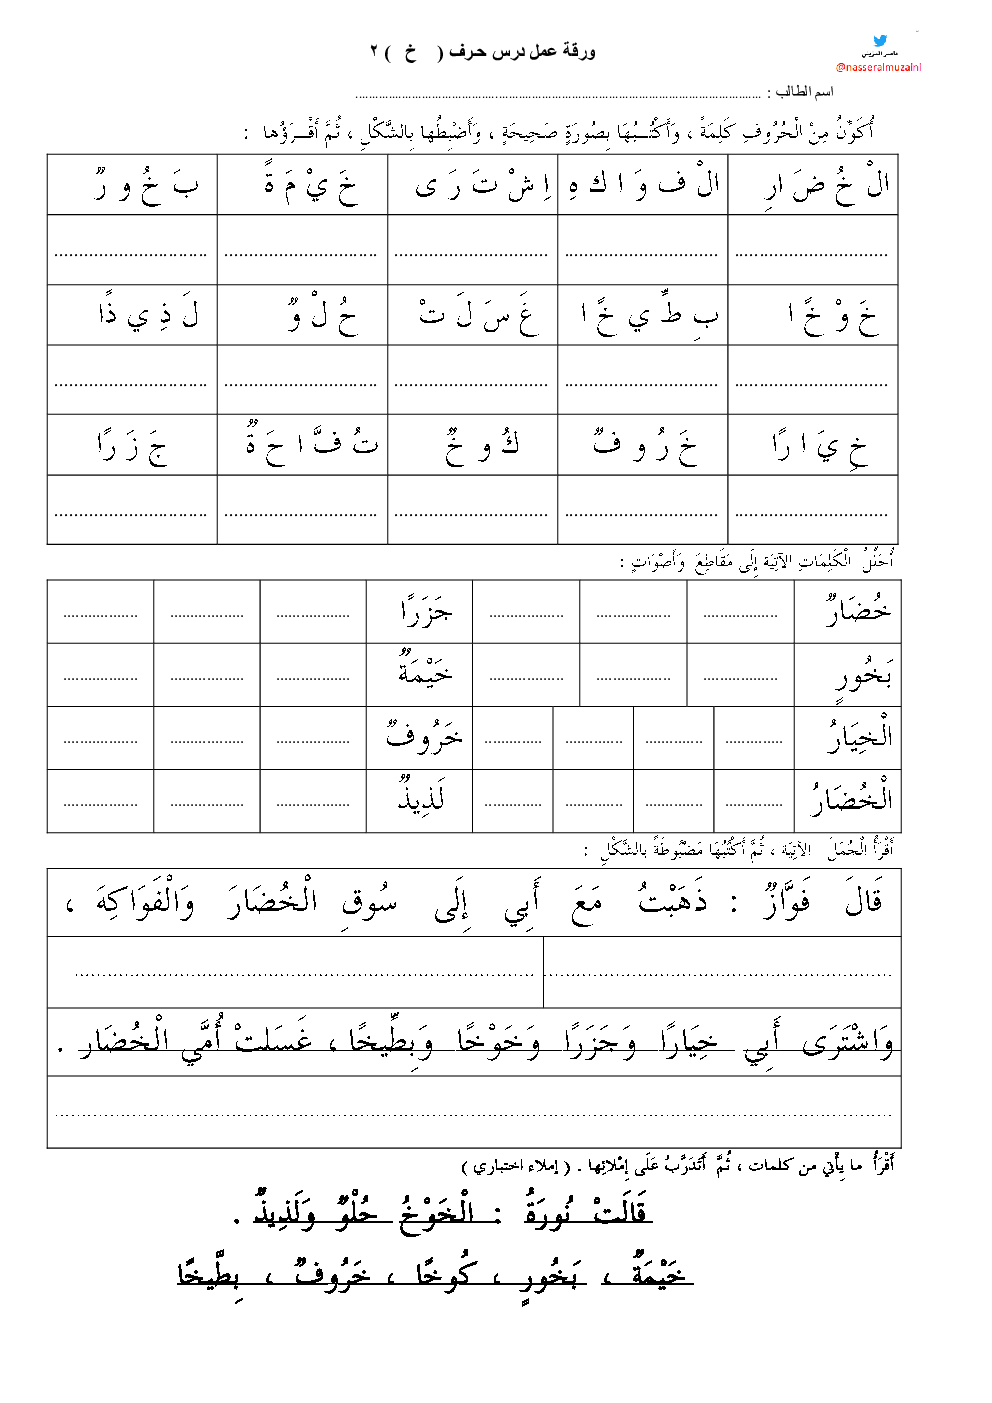 ناصر المزيني
@nasseralmuzaini
ورقة عمل درس حرف ( خ ) ٢
اسم الطالب : ................................................
أُكَوِّنُ مِنْ الْحُرُوفِ كَلِمَةً ، وَأَكْتُـبُهَا بِصُورَةٍ صَحِيحَةٍ ، وَأَضْبِطُها بِالشَّكْلِ ، ثُمَّ أَقْـرَؤُها :
الْ خُ ضَ ارِ	الْ ف وَ ا ك هِ	اِ شْ تَ رَ ى	خَ يْ مَ ةً	بَ خُ و رٌ
خَ وْ خً ا	بِ طِّ ي خً ا	غَ سَ لَ تْ	حُ لْ وٌ	لَ ذِ ي ذًا
خِ يَ ا رًا	خَ رُ و فٌ	كُ و خٌ	تُ فَّ ا حَ ةٌ	جَ زَ رًا
أُحَلِّلُ الْكَلِمَاتِ الآتِيَة إِلَى مَقَاطِعَ وَأَصْوَاتٍ :
خُضَارٌ	جَزَرًا
بَخُورٍ	خَيْمَةٌ
الْخِيَارُ	خَرُوفٌ
الْخُضَارُ	لَذِيذٌ
أَقْرَأُ الْجُمَلَ الآتِيَة ، ثُمَّ أَكْتُبُهَا مَضْبُوطَةً بالشَّكْلِ :
قَالَ فَوَّازٌ : ذَهَبْتُ مَعَ أَبِي إِلَى سُوقِ الْخُضَارَ وَالْفَوَاكِهَ ،
وَاشْتَرَى أَبِي خِيَارًا وَجَزَرًا وَخَوْخًا وَبِطِّيخًا ، غَسَلتْ أُمِّي الْخُضَار .
أَقْرَأُ ما يِأْتي من كلمات ، ثُمَّ أَتَدَرَّبُ عَلَى إِمْلائِها . ( إملاء اختباري )
قَالَتْ نُورَةُ : الْخَوْخُ حُلْوٌ وَلَذِيذٌ .
خَيْمَةٌ ، بَخُورٍ ، كُوخًا ، خَرُوفٌ ، بِطَّيخًا